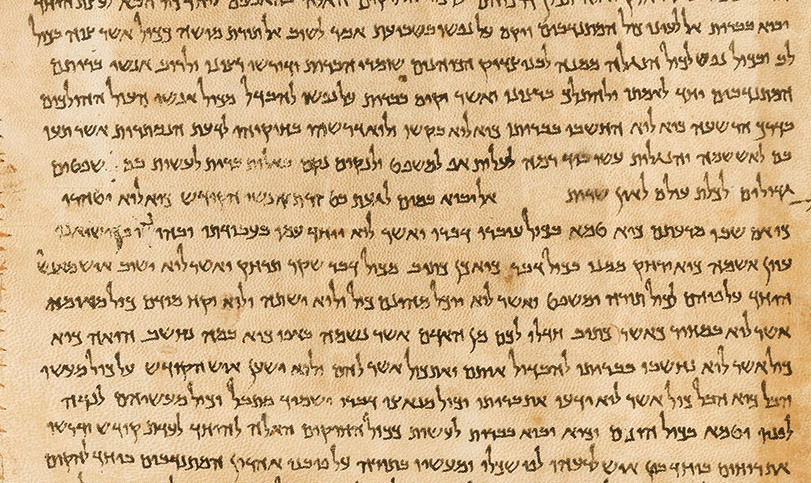 יבוא בברית אל לעיני כול המתנדבים ויקם על נפשו בשבועת אסר לשוב אל תורת מושה ככול אשר צוה בכול
לב ובכול נפש לכול הנגלה ממנה לבני צדוק הכוהנים שומרי הברית ודורשי רצונו ולרוב אנשי בריתם
המתנדבים יחד לאמתו ולהתלך ברצונו ואשר יקים בברית על נפשו להבדל מכול אנשי העול ההולכים
בדרך הרשעה כיא לוא החשבו בבריתו כיא לוא בקשו ולוא דרשהו בחוקוהי לדעת הנסתרות אשר תעו
בם לאשמה והנגלות עשו ביד רמה לעלות אפ למשפט ולנקום נקם באלות ברית לעשות בם שפטים
גדולים לכלת עולם לאין שרית אל יבוא במים לגעת בטהרת אנשי הקודש כיא לוא יטהרו
כי אם שבו מרעתם כיא טמא בכול עוברי דברו ואשר לוא ייחד עמו בעבודתו ובהונו ישיאנו
עוון אשמה כיא ירחק ממנו בכול דבר כיא כן כתוב מכול דבר שקר תרחק ואשר לוא ישיב איש מאנשי
היחד על פיהם לכול תורה ומשפט ואשר לוא יוכל מהונם כול ולוא ישתה ולוא יקח מידם כול מאומה
אשר לוא במחיר כאשר כתוב חדלו לכם מן האדם אשר נשמה באפו כיא במה נחשב הואה כיא
כול אשר לוא נחשבו בבריתו להבדיל אותם ואת כול אשר להם ולוא ישען איש הקודש על כול מעשי
הבל כיא הבל כול אשר לוא ידעו את בריתו וכול מנאצי דברו ישמיד מתבל וכול מעשיהם לנדה
לפניו וטמא בכול הונם וכיא יבוא בברית לעשות ככול החוקים האלה להיחד לעדת קודש ודרשו
את רוחום ביחד בין איש לרעהו לפי שכלו ומעשיו בתורה על פי בני אהרון המתנדבים ביחד להקים